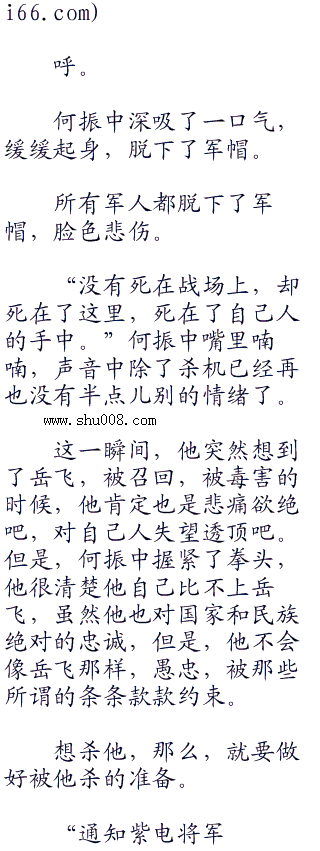 i66.com)
呼。
何振中深吸了一口气，
缓缓起身，脱下了军帽。
所有军人都脱下了军
帽，脸色悲伤。
“没有死在战场上，却
死在了这里，死在了自己人
的手中。”何振中嘴里喃
喃，声音中除了杀机已经再
也没有半点儿别的情绪了。
www.shu008.com
这一瞬间，他突然想到
了岳飞，被召回，被毒害的
时候，他肯定也是悲痛欲绝
吧，对自己人失望透顶吧。
但是，何振中握紧了拳头，
他很清楚他自己比不上岳
飞，虽然他也对国家和民族
绝对的忠诚，但是，他不会
像岳飞那样，愚忠，被那些
所谓的条条款款约束。
想杀他，那么，就要做
好被他杀的准备。
“通知紫电将军